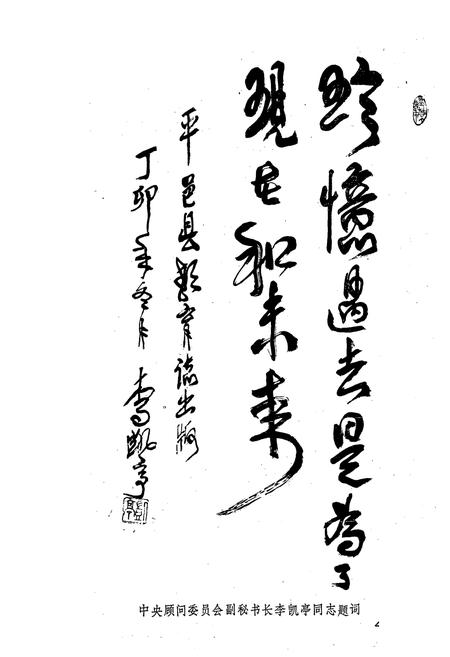 珍憶過去是為了
現在和未来
平邑县教育誌出版
丁卯年冬月 李凱亭
中央顾问委员会副秘书长李凯亭同志题词
2